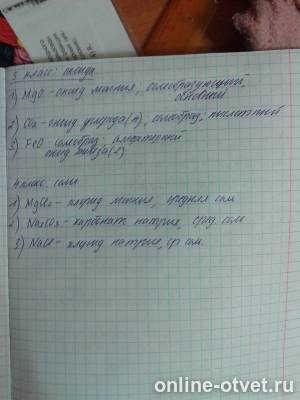 3 класс: оксиды
1) MgO - оксид магния, солеобразующий,
основный
2) CO₂ - оксид углерода(4), солеобраз, кислотный
3) FeO - солеобраз. амфотерный
оксид железа(2)
4 класс. соли
1) MgCl₂ - хлорид магния, средняя соль
2) Na₂CO₃ - карбонат натрия, сред. соль
3) NaCl - хлорид натрия, ср. соль.
online-otvet.ru